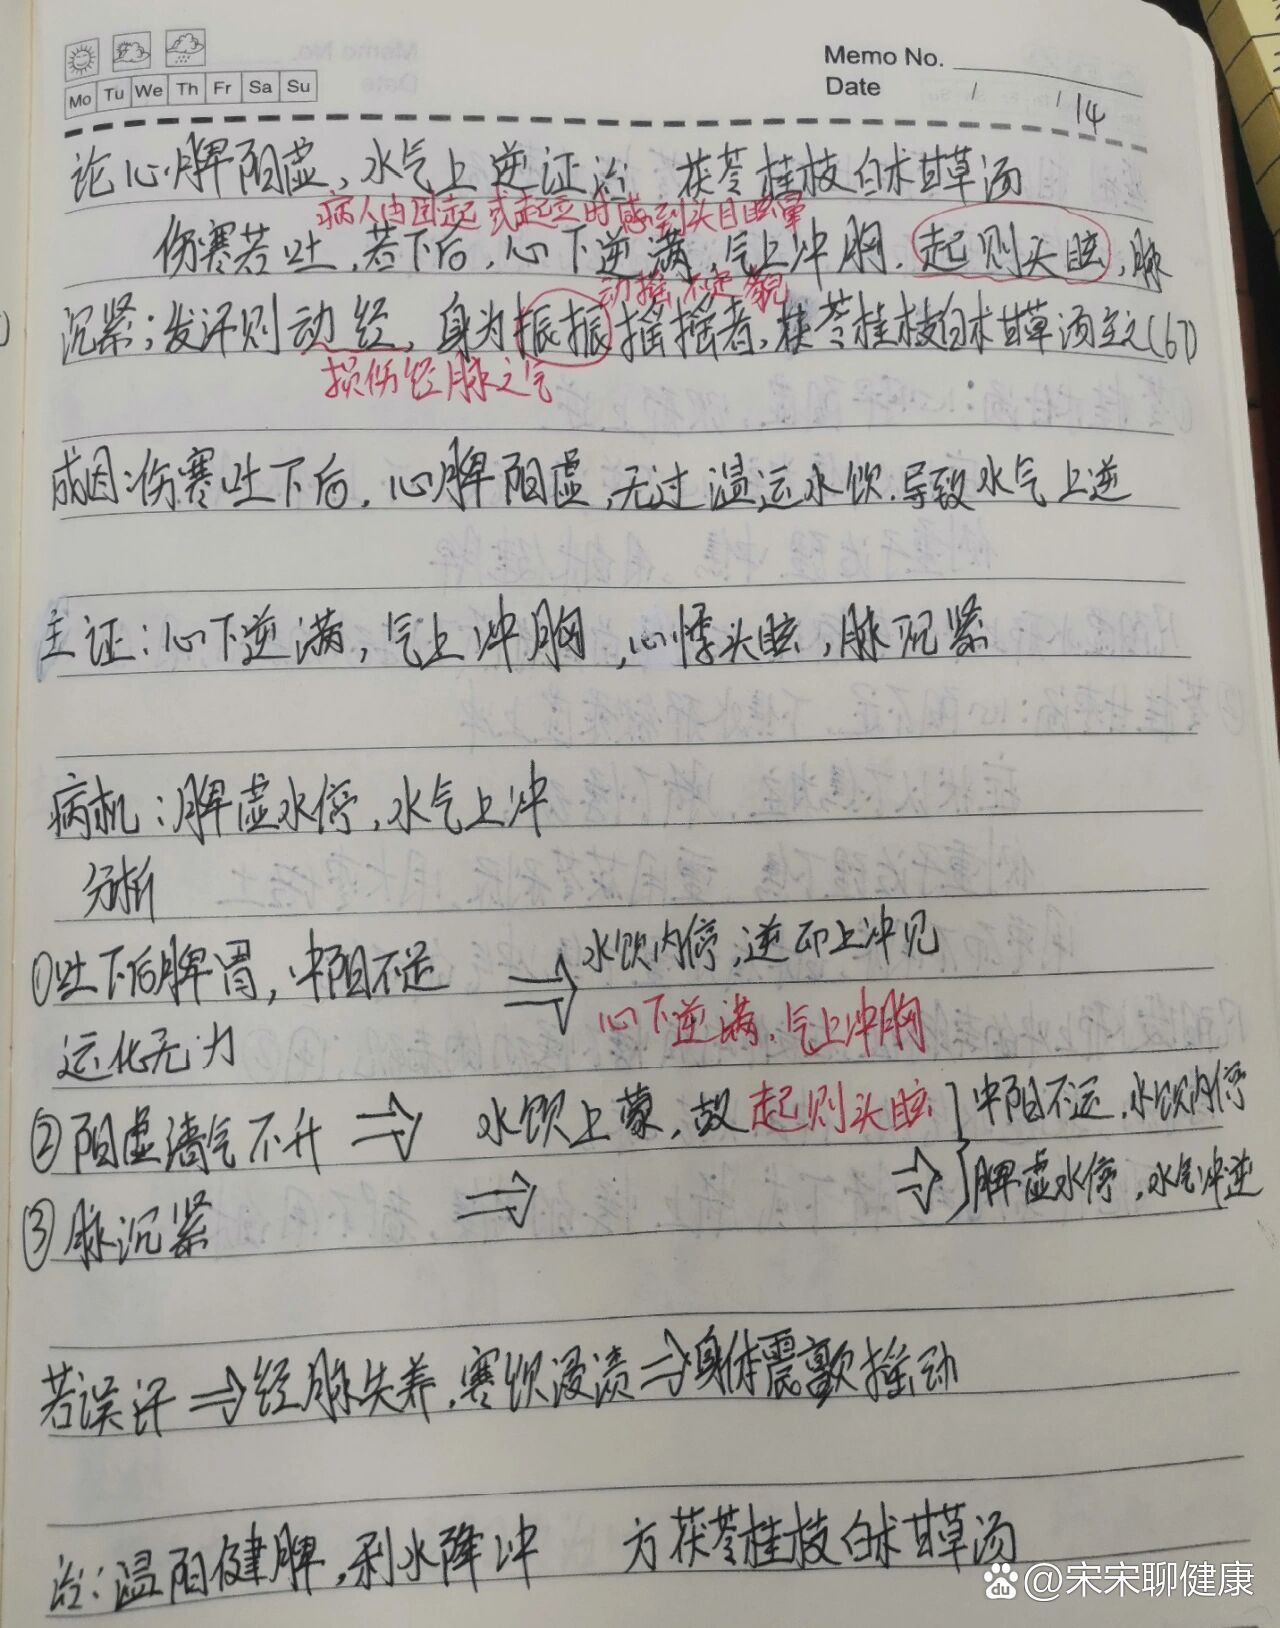 Memo No.
Mo Tu We Th Fr Sa Su
Date / / 14
论心脾阳虚,水气上逆证治 茯苓桂枝白术甘草汤
病人由困起或起立时感到头目眩晕
伤寒若吐,若下后,心下逆满,气上冲胸,起则头眩,脉
动摇不定貌
沉紧;发汗则动经,身为振振摇摇者,茯苓桂枝白术甘草汤主之(67)
损伤经脉之气
成因:伤寒吐下后,心脾阳虚,无过温运水饮.导致水气上逆
主证:心下逆满,气上冲胸,心悸头眩,脉沉紧
病机:脾虚水停,水气上冲
分析
①吐下后脾胃,中阳不运 ⇒ 水饮内停,逆而上冲见
运化无力 心下逆满,气上冲胸
②阳虚清气不升 ⇒ 水饮上蒙,故起则头眩 中阳不运,水饮内停
③脉沉紧 ⇒ ⇒ 脾虚水停,水气冲逆
若误汗⇒经脉失养,寒饮浸渍⇒身体震颤摇动
治:温阳健脾,利水降冲 方茯苓桂枝白术甘草汤
du @宋宋聊健康